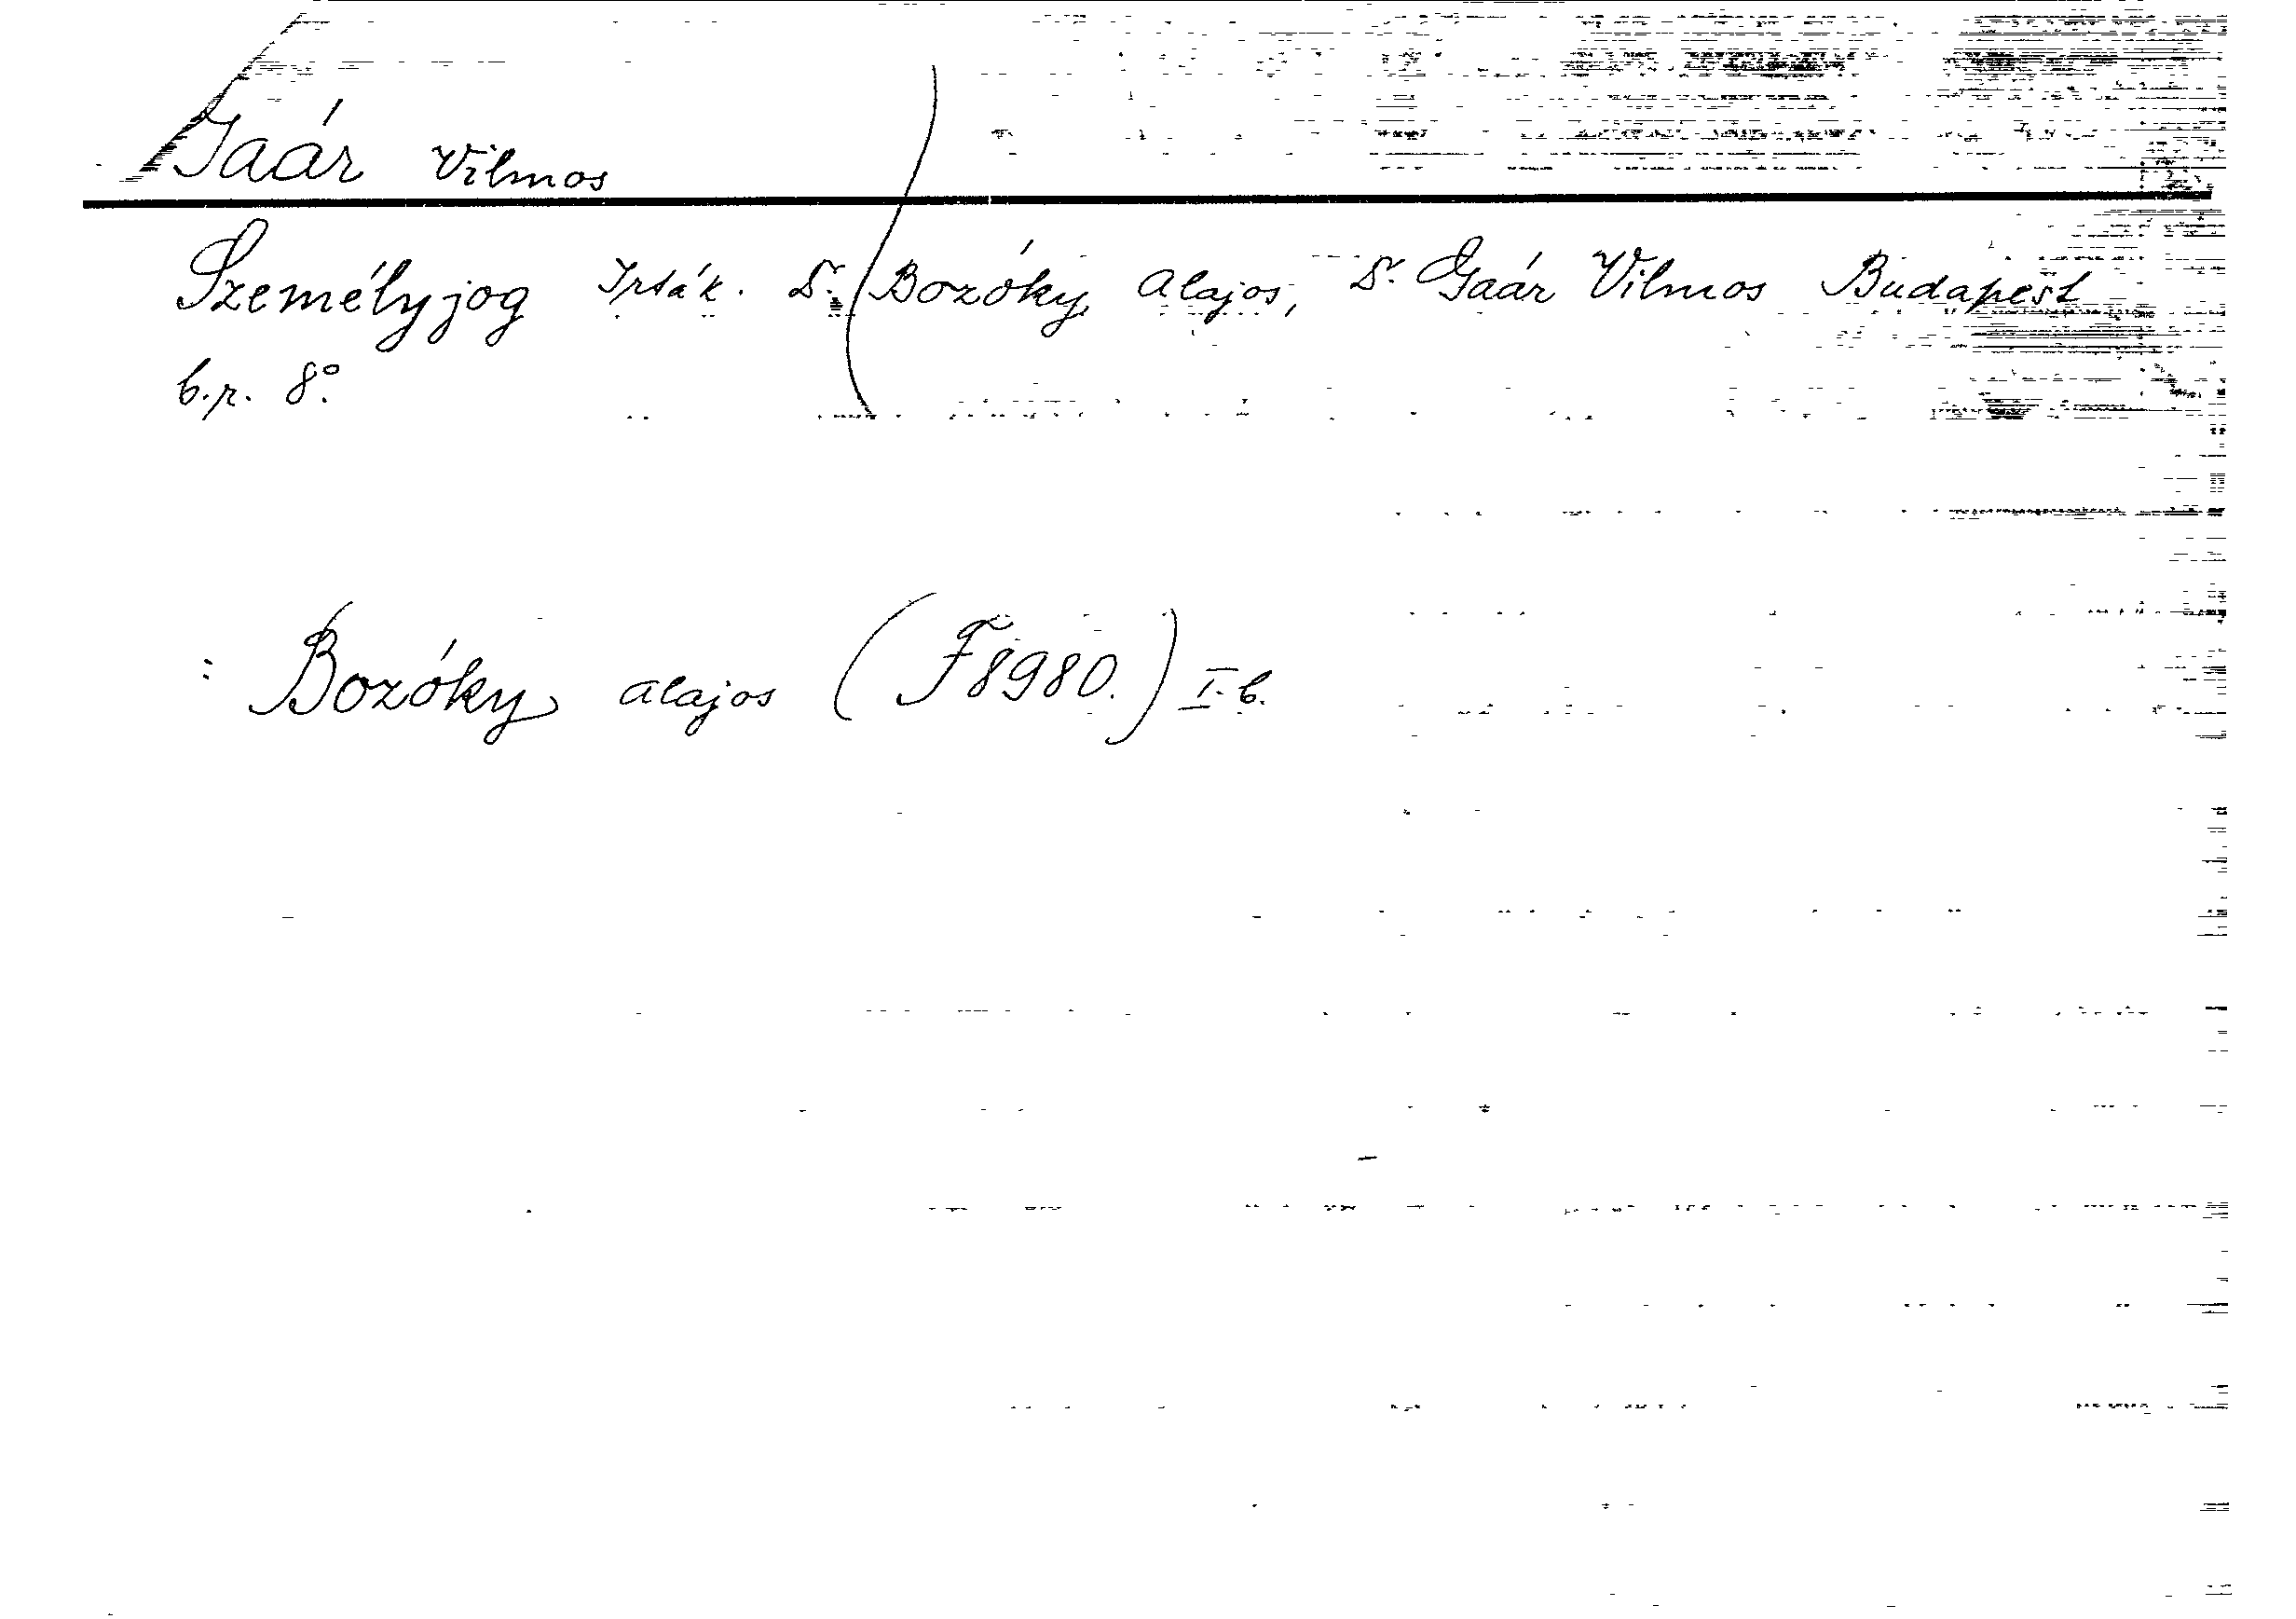 Gaár Vilmos
Személyjog Irták. Dr. Bozóky Alajos, Dr. Gaár Vilmos Budapest
é.n. 8°.
: Bozóky Alajos (F8980.) I. b.